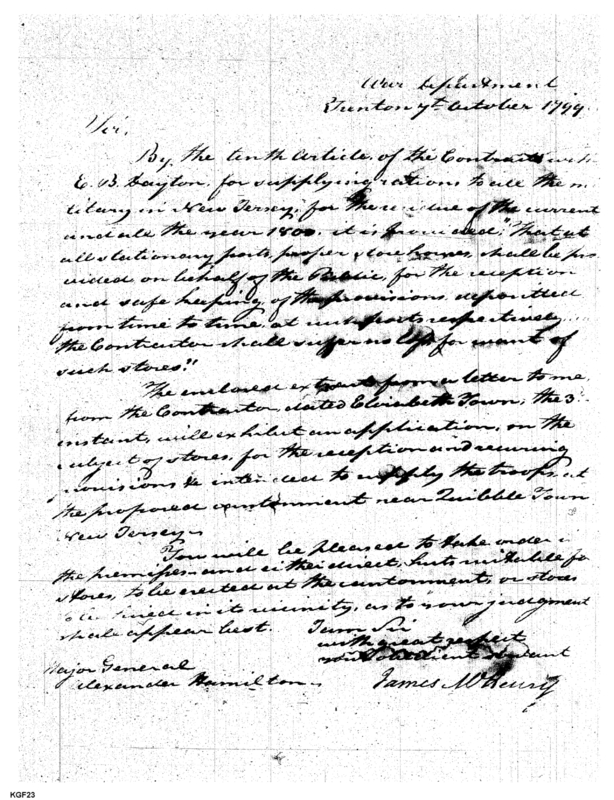 War Department
Trenton 7th October 1799.
Sir,
By the tenth article, of the Contract with
E. B. Dayton, for supplying rations to all the mi
litary in New Jersey, for the residue of the current
and all the year 1800. it is provided, "That at
all stationary posts, proper store houses, shall be pro
vided on behalf of the Public, for the reception
and safe keeping of the provisions deposited
from time to time at such posts respectively
the Contractor shall suffer no loss for want of
such stores."
The enclosed extract from a letter to me
from the Contractor, dated Elizabeth Town, the 3
instant, will exhibit an application, on the
subject of stores, for the reception and securing
provisions &c intended to supply the troops, at
the proposed cantonment near Quibble Town
New Jersey.
You will be pleased to take order in
the premises and either direct, huts suitable for
stores, to be erected at the cantonment, or stores
to be hired in its vicinity, as to your judgment
shall appear best. I am Sir
with great respect
your obedient servant
James McHenry
Major General
Alexander Hamilton
KGF23